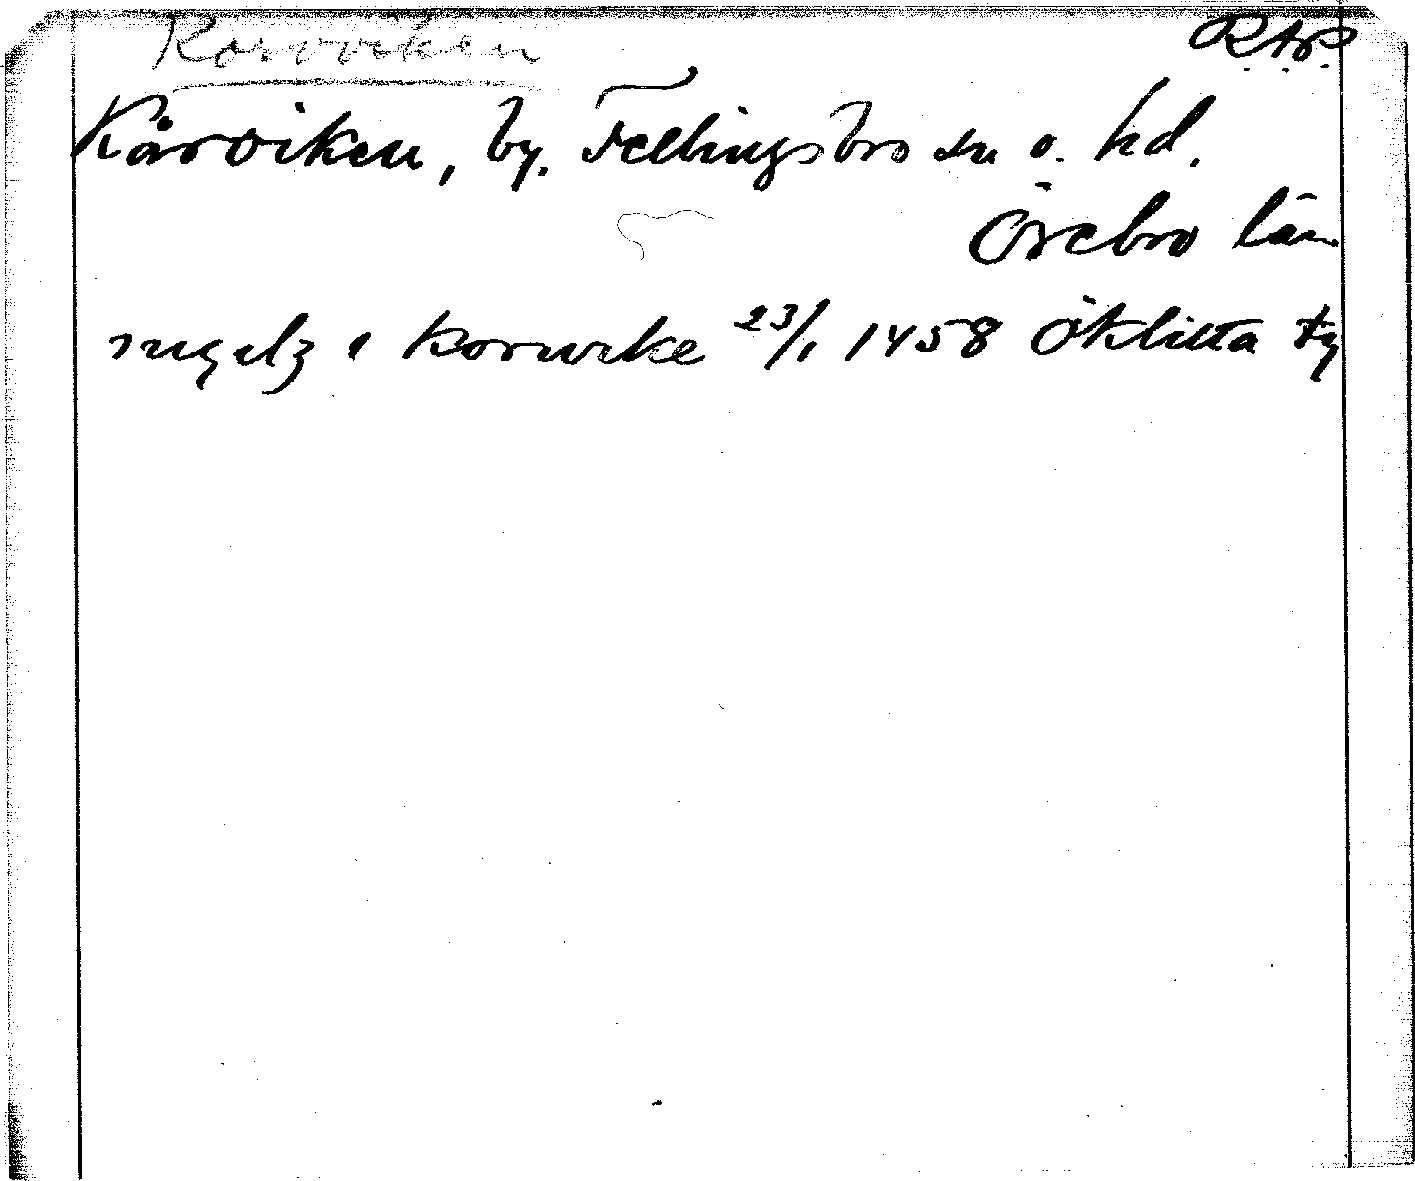 Korvviken
R.A.P.
Kårviken, by. Fellingsbro sn o. hd.
Örebro län
ingelz i korwike 23/1 1458 Öklitta fg